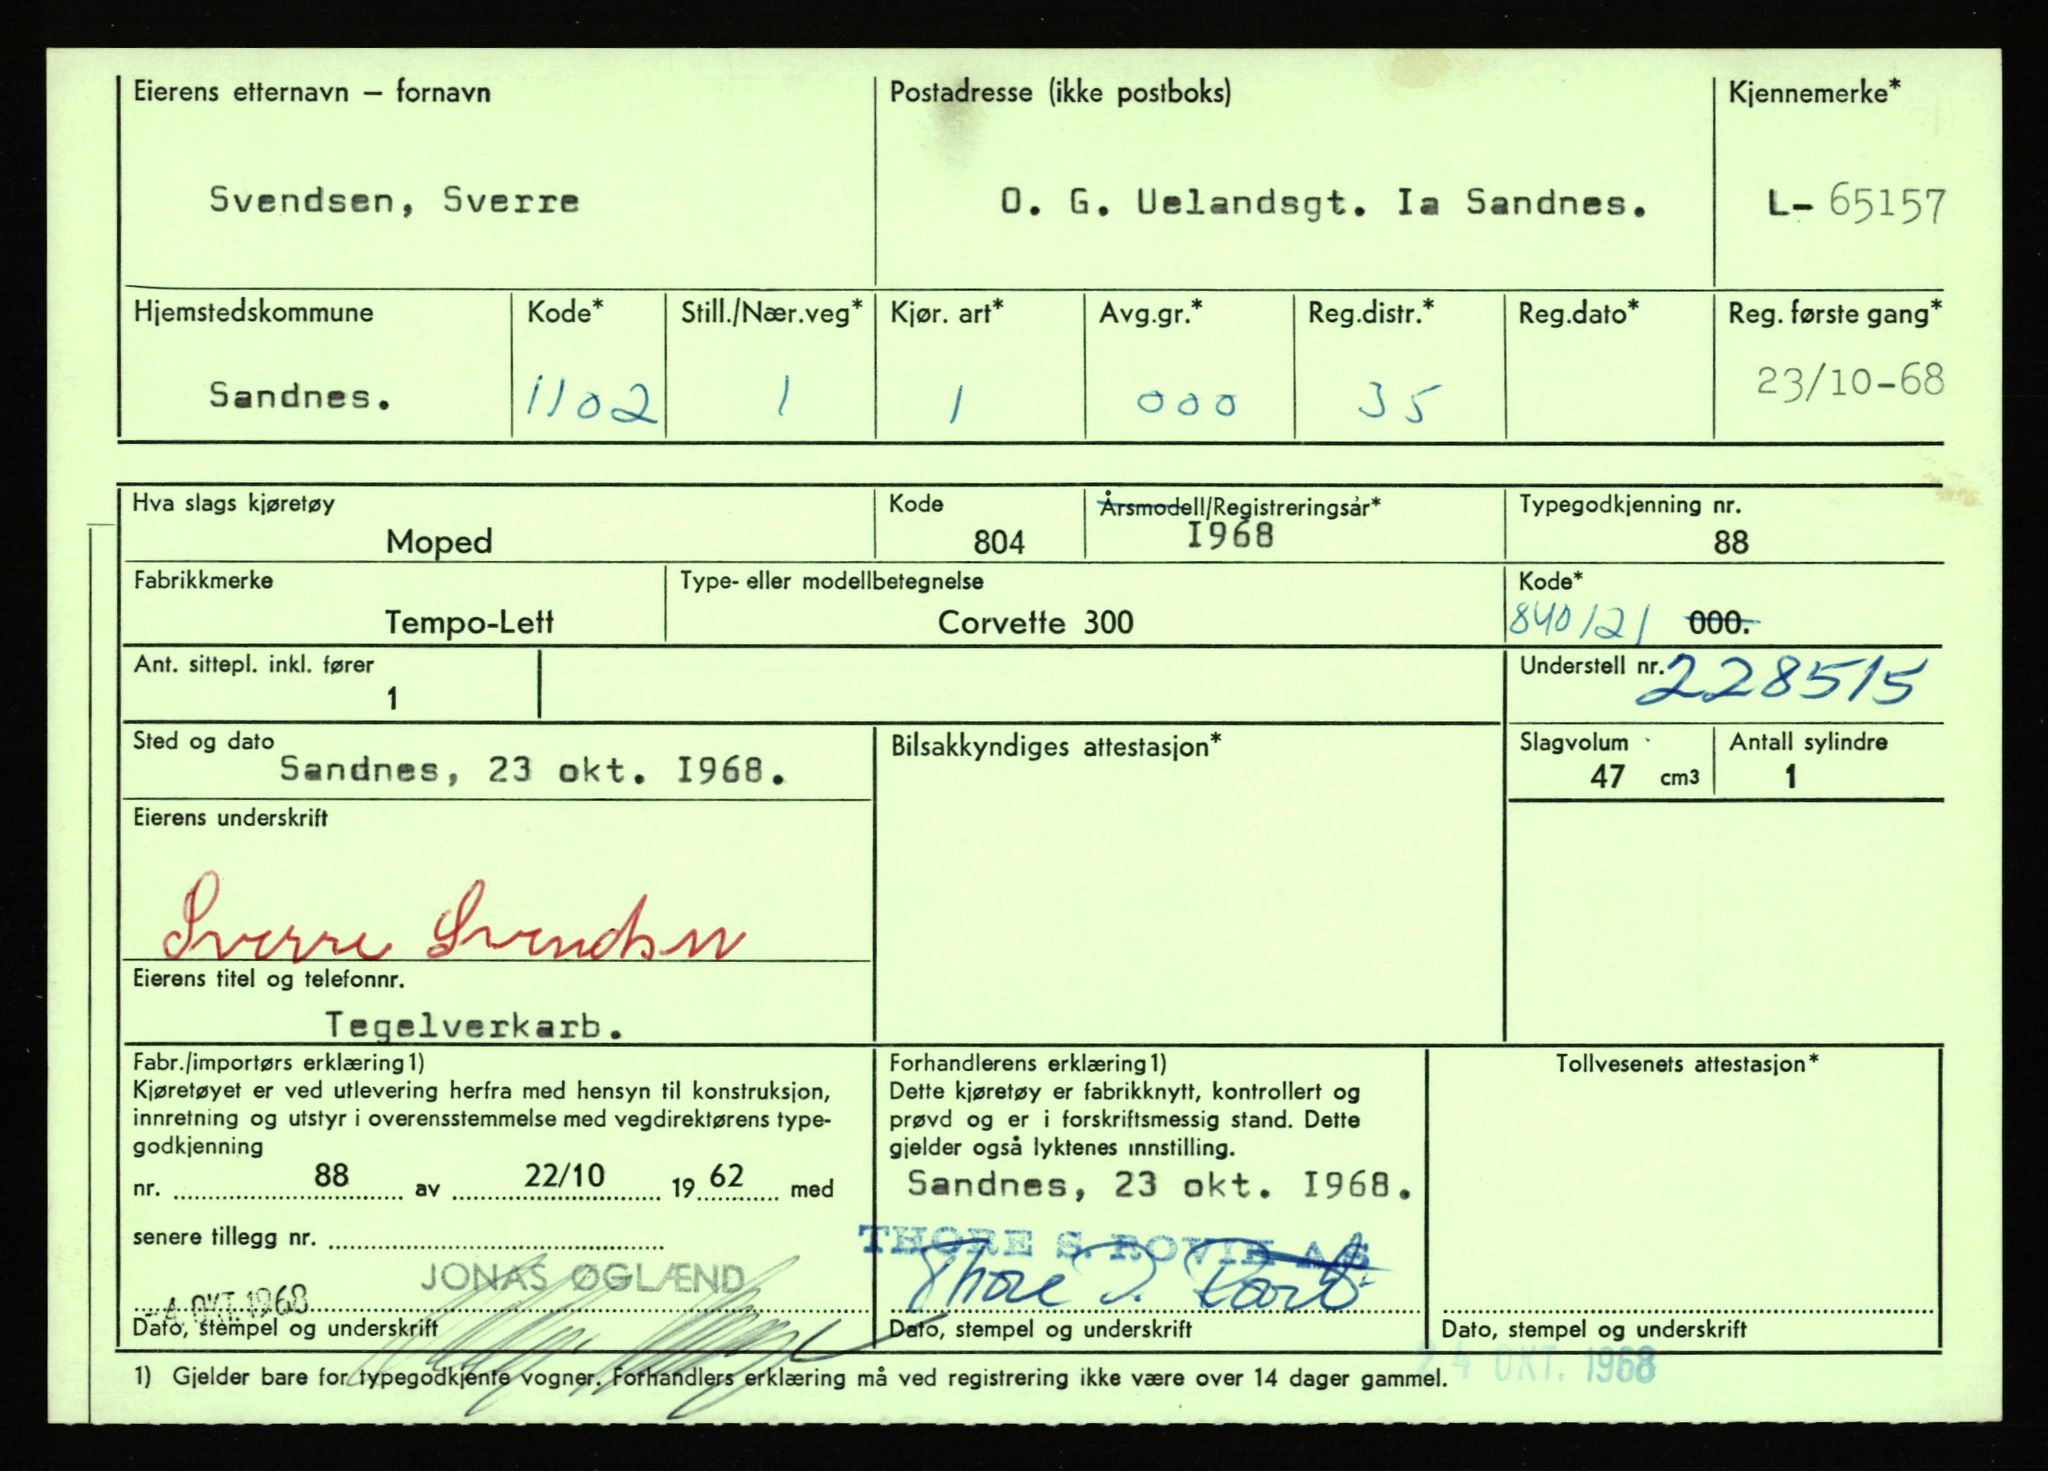 Eierens etternavn – fornavn Postadresse (ikke postboks) Kjennemerke*
Svendsen, Sverre O. G. Uelandsgt. Ia Sandnes. L- 65157
Hjemstedskommune Kode* Still./Nær.veg* Kjør. art* Avg.gr.* Reg.distr.* Reg.dato* Reg. første gang*
Sandnes. 1102 1 1 000 35 23/10-68
Hva slags kjøretøy Kode Årsmodell/Registreringsår* Typegodkjenning nr.
Moped 804 I968 88
Fabrikkmerke Type- eller modellbetegnelse Kode*
Tempo-Lett Corvette 300 840121 000.
Ant. sittepl. inkl. fører Understell nr. 228515
1
Sted og dato Bilsakkyndiges attestasjon* Slagvolum Antall sylindre
Sandnes, 23 okt. I968. 47 cm3 1
Eierens underskrift
Sverre Svendsen
Eierens titel og telefonnr.
Tegelverkarb.
Fabr./importørs erklæring1)
Kjøretøyet er ved utlevering herfra med hensyn til konstruksjon,
innretning og utstyr i overensstemmelse med vegdirektørens type-
godkjenning
nr. 88 av 22/10 19 62 med
senere tillegg nr.
JONAS ØGLÆND
-4 OKT. 1968
Dato, stempel og underskrift
Forhandlerens erklæring1)
Dette kjøretøy er fabrikknytt, kontrollert og
prøvd og er i forskriftsmessig stand. Dette
gjelder også lyktenes innstilling.
Sandnes, 23 okt. I968.
THORE S. ROVIK A/S
Thore S.
Dato, stempel og underskrift
Tollvesenets attestasjon*
Dato, stempel og underskrift
24 OKT. 1968
1) Gjelder bare for typegodkjente vogner. Forhandlers erklæring må ved registrering ikke være over 14 dager gammel.